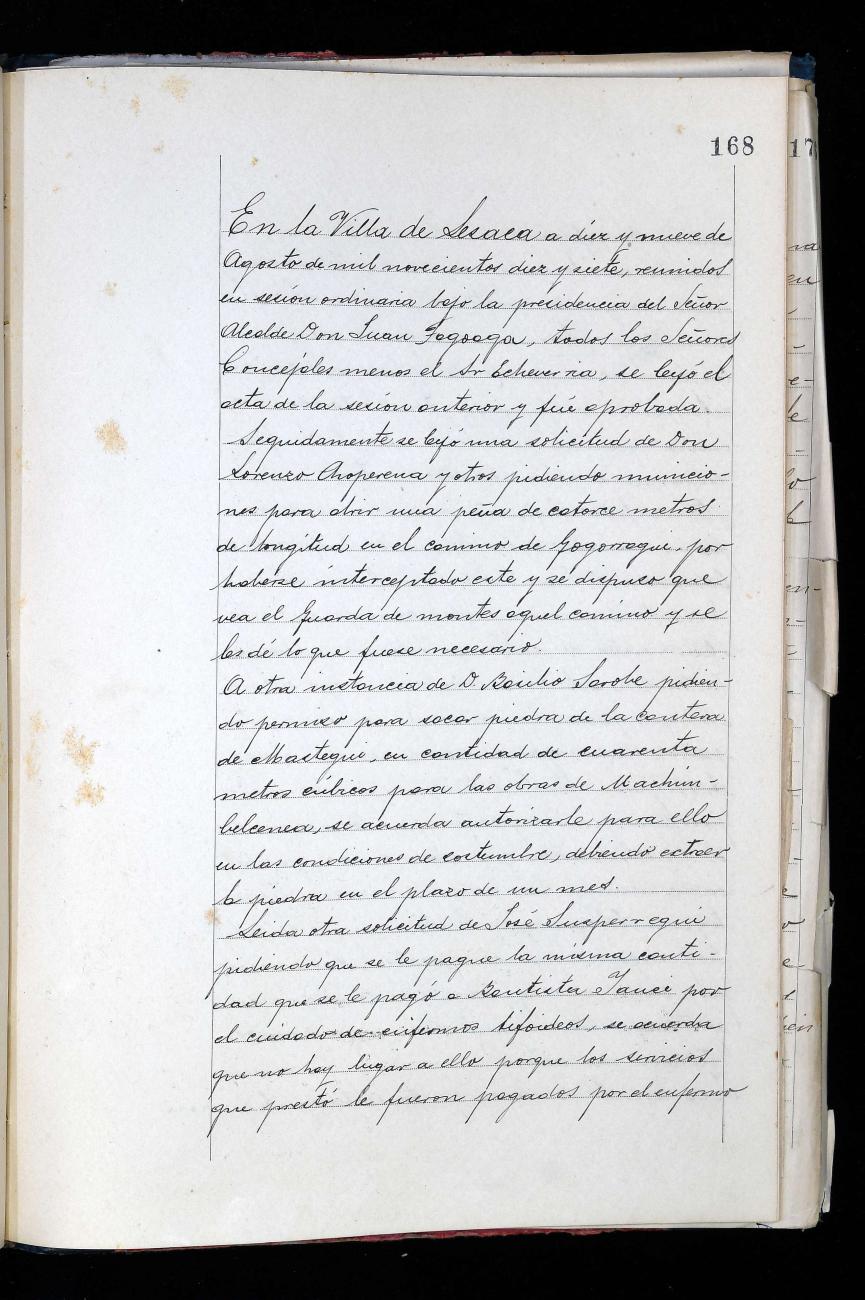 168
17
En la Villa de Lesaca a diez y nueve de
Agosto de mil novecientos diez y siete, reunidos
en sesión ordinaria bajo la presidencia del Señor
Alcalde Don Juan Fagoaga, todos los Señores
Concejales menos el Sr Echeverria, se leyó el
acta de la sesión anterior y fué aprobada.
Seguidamente se leyó una solicitud de Don
Lorenzo Choperena y otros pidiendo municio-
nes para abrir una peña de catorce metros
de longitud en el camino de Gogorregui, por
haberse interceptado este y se dispuso que
vea el Guarda de montes aquel camino y se
les dé lo que fuese necesario.
A otra instancia de D. Basilio Sarobe pidien-
do permiso para sacar piedra de la cantera
de Mastegui, en cantidad de cuarenta
metros cúbicos para las obras de Machim-
belcenea, se acuerda autorizarle para ello
en las condiciones de costumbre, debiendo extraer
la piedra en el plazo de un mes.
Leida otra solicitud de José Susperregui
pidiendo que se le pague la misma canti-
dad que se le pagó a Bautista Tance por
el cuidado de enfermos tifoideos, se acuerda
que no hay lugar a ello porque los servicios
que prestó le fueron pagados por el enfermo